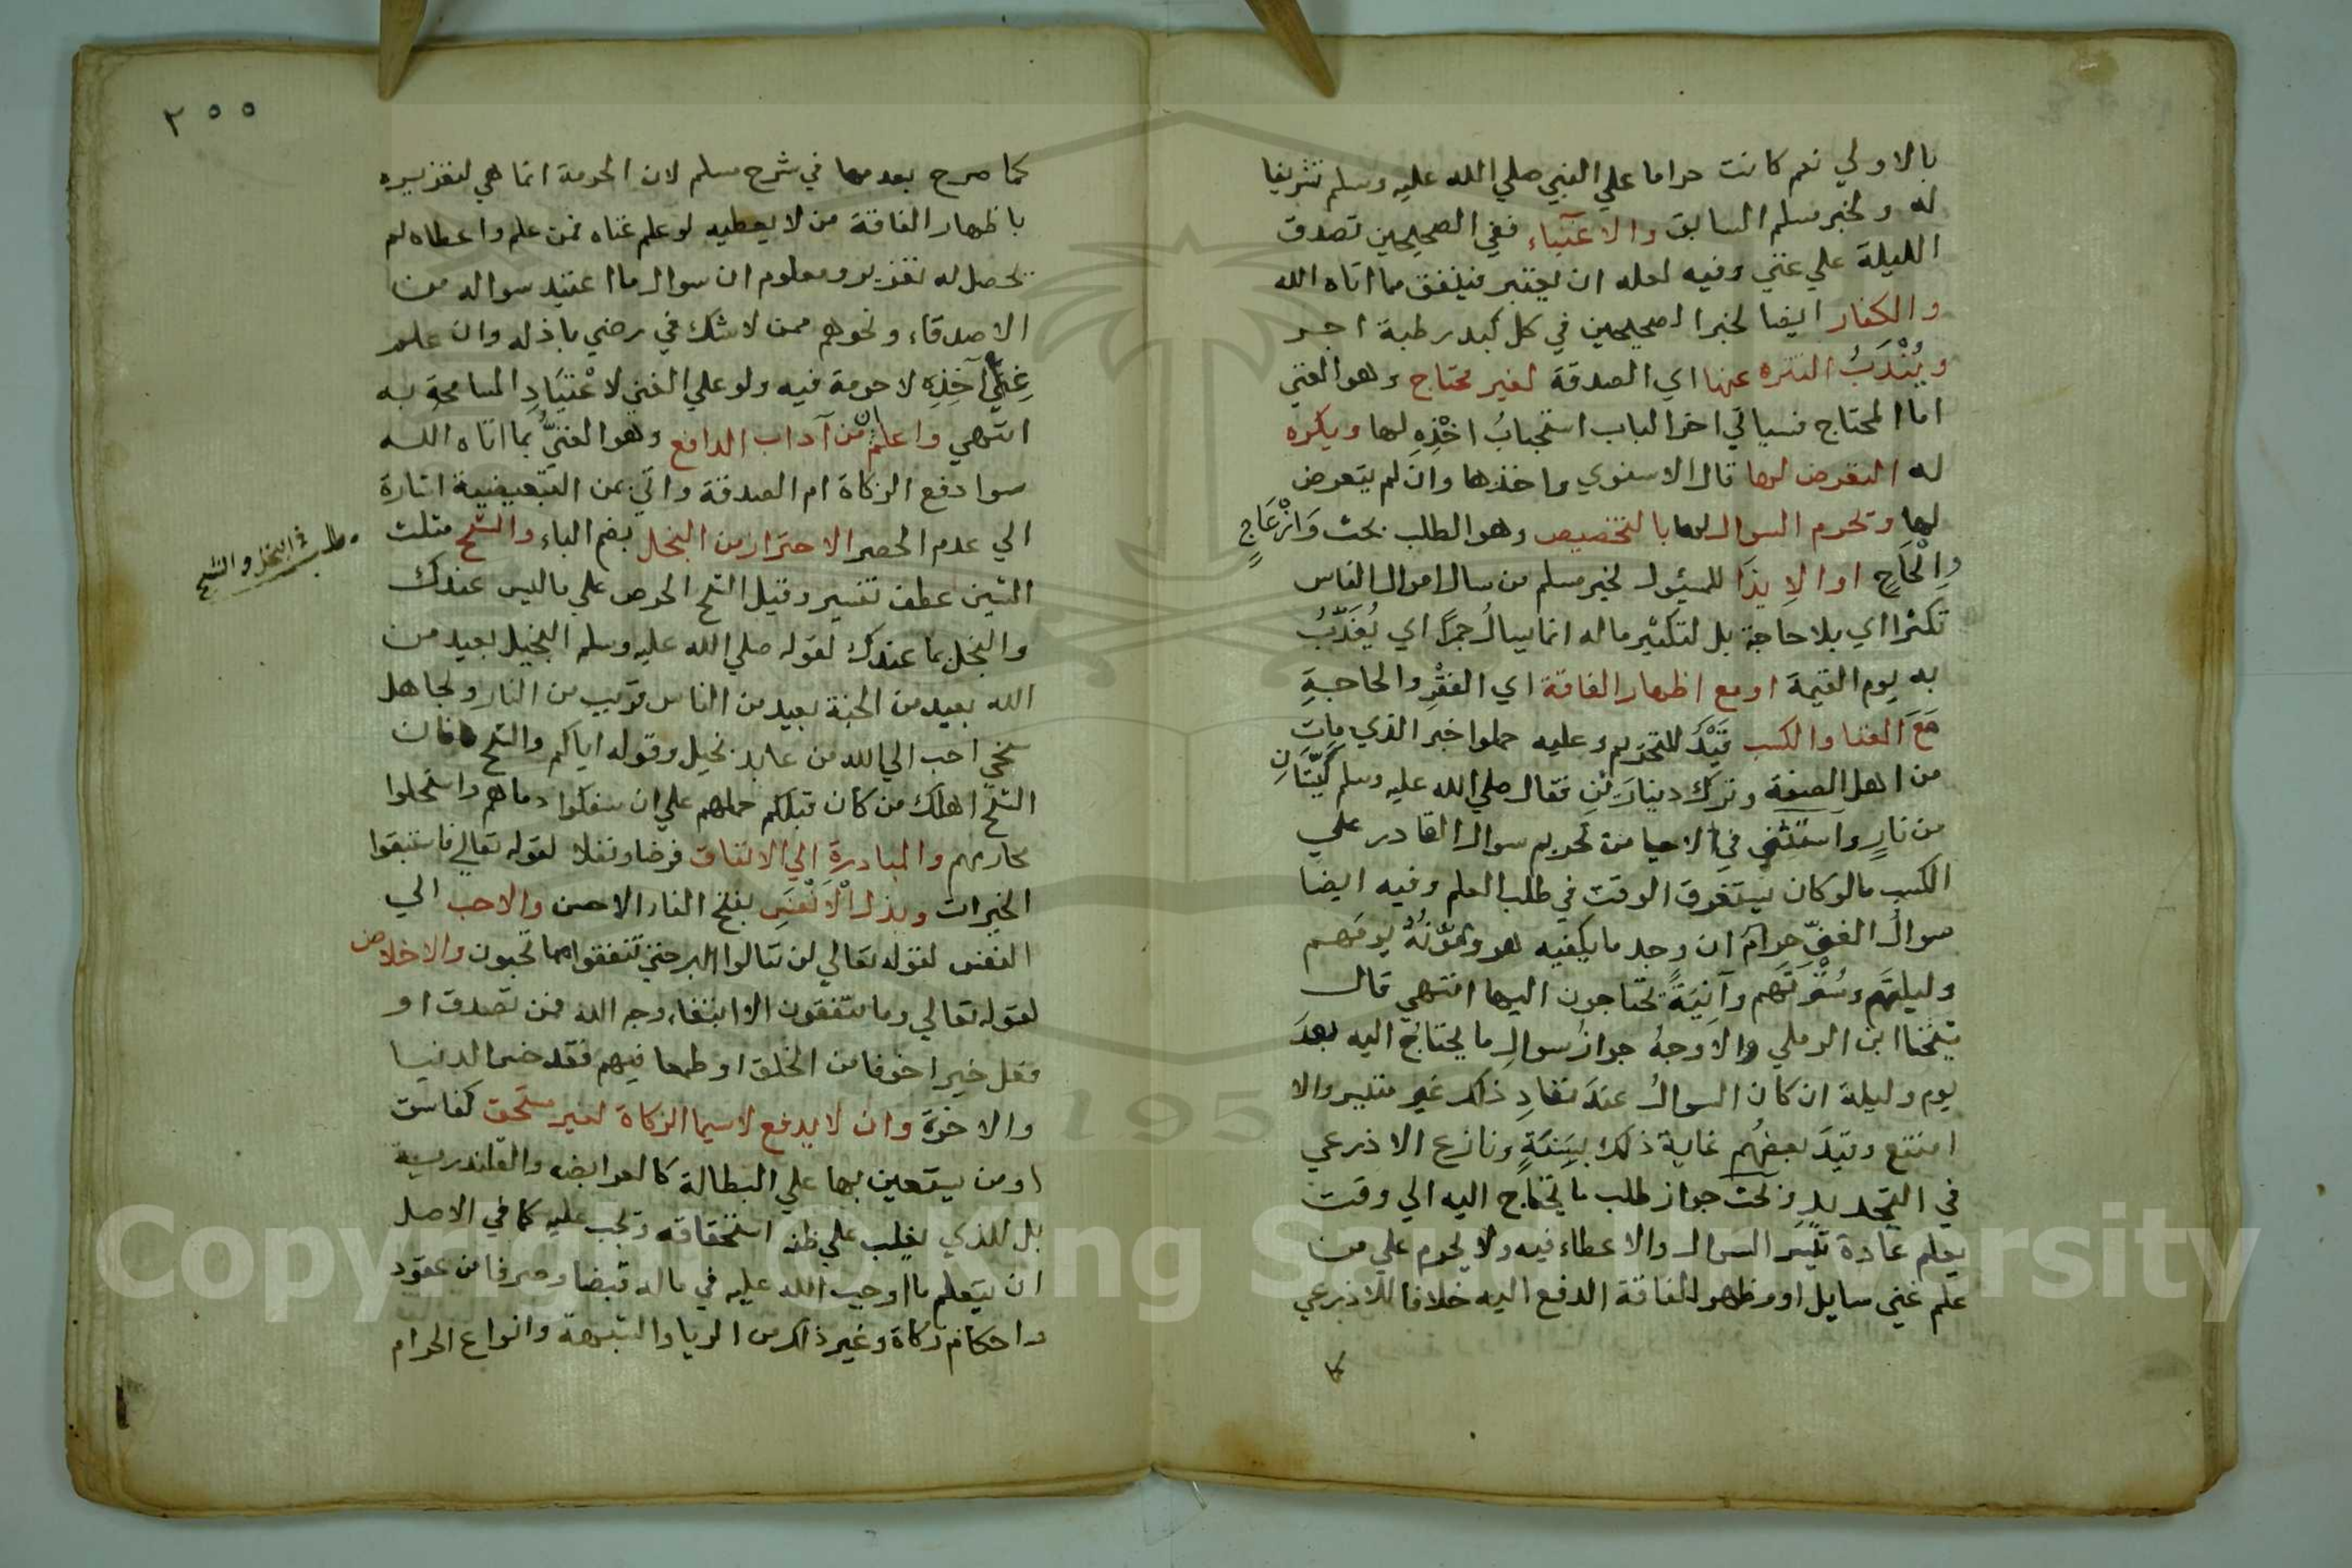 بالاولي نعم كانت حراما علي النبي صلي الله عليه وسلم تشريفا
له ولخبر مسلم السابق والاغنياء ففي الصحيحين تصدق
الليلة علي غني وفيه لعله ان يعتبر فينفق مما اتاه الله
والكفار ايضا لخبر الصحيحين في كل كبد رطبة اجر
ويُنْدَبُ التنزه عنها اي الصدقة لغير محتاج وهو الغني
اما المحتاج فسياتي اخر الباب استحبابُ اخْذِهِ لها ويكره
له التعرض لها قال الاسنوي واخذها وان لم يتعرض
لها وتحرم السوال لها بالتخصيص وهو الطلب بحث وَانْزِعَاجٍ
وِالْحَاحٍ او الاِيذَا للمسئول لخبر مسلم من سال اموال الناس
تكثرا اي بلا حاجة بل لتكثير ماله انما يسالُ جمرًا اي يُعَذَّبُ
به يوم القيمة او مع اظهار الفاقة اي الفقْرِ والحاجةِ
مَعَ الغنا والكسب قَيْدٌ للتحريم وعليه حملوا خبر الذي مات
من اهل الصفة وترك دينارَيْنِ فقال صلي الله عليه وسلم كَيَّتَانِ
من نارٍ واستثني في الاحيا من تحريم سوال القادر علي
الكسب مالوكان يستغرق الوقت في طلب العلم وفيه ايضا
سوالُ الغنيّ حرامٌ ان وجد ما يكفيه هو ومُؤنُهُ يومَهم
وليلتَهم وسُتْرَتَهم وآنِيَةً يحتاجون اليها انتهي قال
شيخنا ابن الرملي والاوجهُ جوازُ سوالِ ما يحتاجُ اليه بعدَ
يوم وليلة ان كان السوالُ عندَ نفادِ ذلك غير متيسر والا
امتنع وقيدَ بعضُهم غايةَ ذلك بسَنَةٍ ونازع الاذرعي
في التحديد وبحث جواز طلب ما يحتاج اليه الي وقت
يعلم عادة تيسر السوال والاعطاء فيه ولا يحرم علي من
علم غني سايل او مظهر الفاقة الدفع اليه خلافا للاذرعي
كما
٢٥٥
كما صرح بعدمها في شرح مسلم لان الحرمة انما هي لتغريره
باظهار الفاقة من لا يعطيه لو علم غناه فمن علم واعطاه لم
يحصل له تغرير ومعلوم ان سوال ما اعتيد سواله من
الاصدقاء ونحوهم ممن لاشك في رضي باذله وان علم
غِنَي آخِذِهِ لا حرمة فيه ولو علي الغني لاعْتِيَادِ المسامحة به
انتهي واعلم ان من آداب الدافع وهو الغنيُّ بما اتاه الله
سوا دفع الزكاة ام الصدقة واتي بمن التبعيضية اشارة
الي عدم الحصر الاحتراز من البخل بضم الباء والشح مثلث
مطلب في البخل والشح
الشين عطف تفسير وقيل الشح الحرص علي ماليس عندك
والبخل بما عندك لقوله صلي الله عليه وسلم البخيل بعيد من
الله بعيد من الجنة بعيد من الناس قريب من النار ولجاهل
سخي احب الي الله من عابد بخيل وقوله اياكم والشح فان
الشح اهلك من كان قبلكم حملهم علي ان سفكوا دماهم واستحلوا
محارمهم والمبادرةِ الي الانفاق فرضا ونفلا لقوله تعالي فاستبقوا
الخيرات وبذل الْاَنْفَسِ بفتح الفاء الاحسن والاحب الي
النفس لقوله تعالي لن تنالوا البر حتي تنفقوا مما تحبون والاخلاص
لقوله تعالي وما تنفقون الا ابتغاء وجه الله فمن تصدق او
فعل خيرا خوفا من الخلق او طمعا فيهم فقد خسر الدنيا
والاخرة وان لا يدفع لاسيما الزكاة لغير مستحق كفاسق
او من يستعين بها علي البطالة كالعوابض والقلندرية
بل للذي يغلب علي ظنه استحقاقه وتجب عليه كما في الاصل
ان يتعلم ما اوجب الله عليه في ماله قبضا وصرفا من عقود
واحكام زكاة وغير ذلك من الربا والشبهة وانواع الحرام